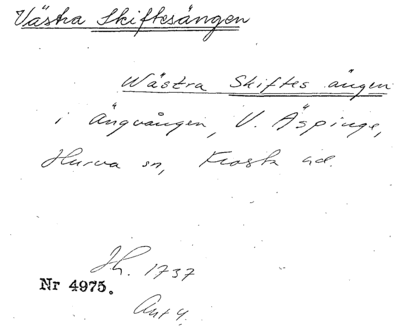 Västra Skiftesängen
Wästra Skiftes ängen
i Ängvången, V. Äspinge,
Hurva sn, Frosta hd.
Jh. 1737
Nr 4975.
Akt 4.